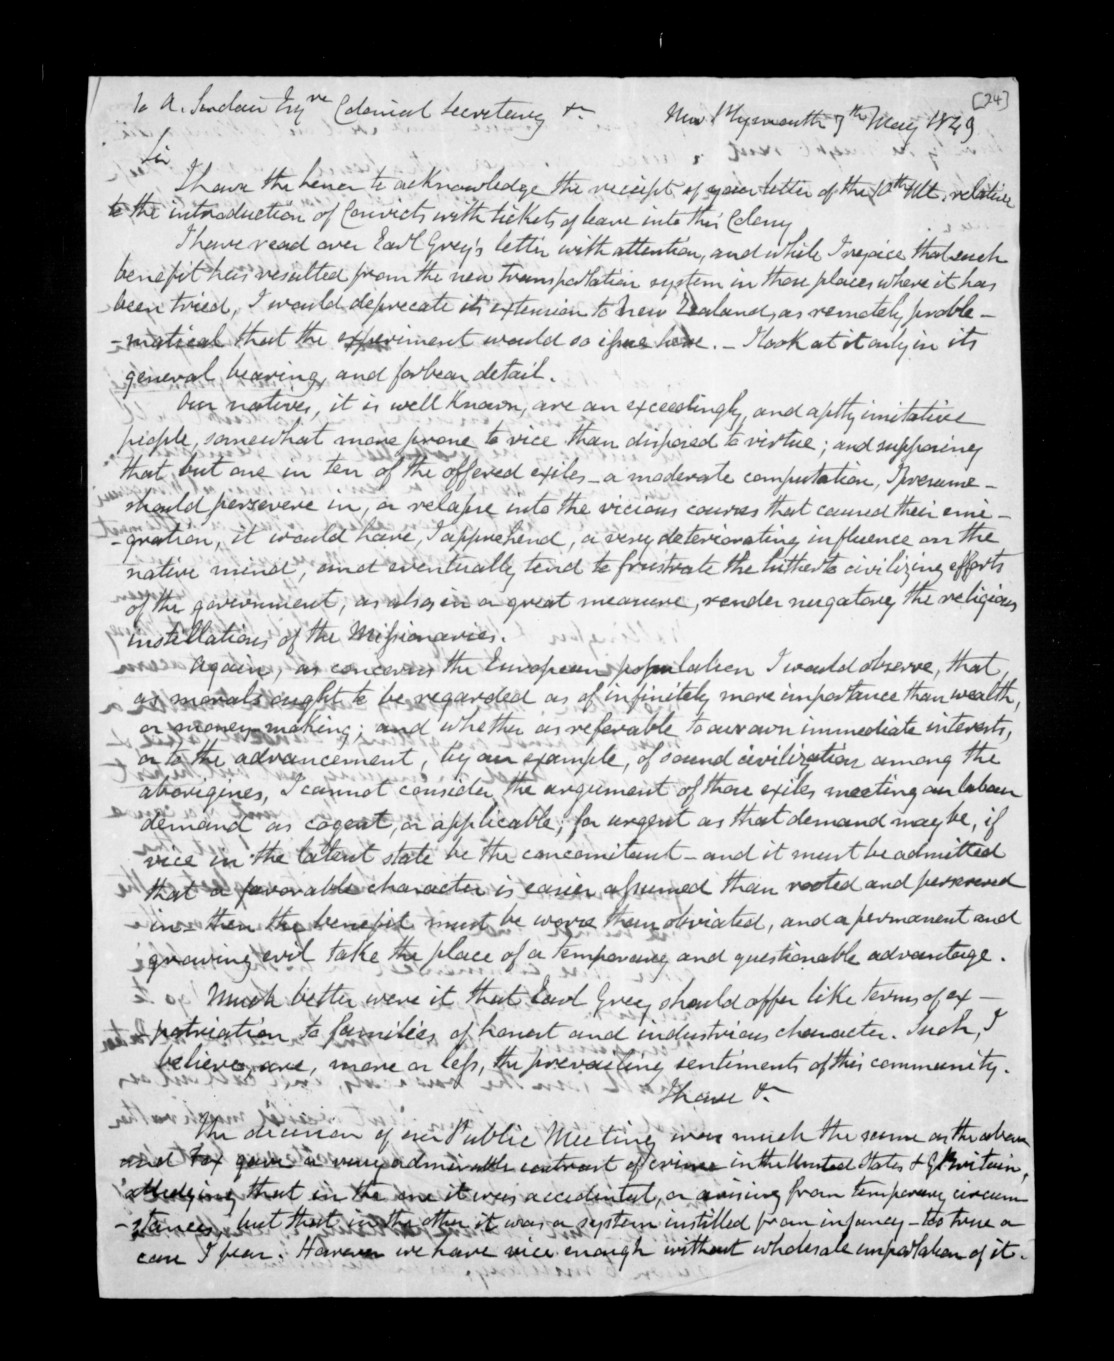 [24]
To A. Sinclair Esqre Colonial Secretary &c New Plymouth 7th May 1849
Sir
I have the honor to acknowledge the receipt of your letter of the 10th Ult. relative
to the introduction of Convicts with tickets of leave into this Colony
I have read over Earl Grey's letter with attention, and while I rejoice that such
benefit has resulted from the new transportation system in those places where it has
been tried, I would deprecate its extension to New Zealand, as remotely proble-
-matical that the experiment would so issue here. - I look at it only in its
general bearing, and forbear detail.
Our natives, it is well known, are an exceedingly, and aptly imitative
people, somewhat more prone to vice than disposed to virtue; and supposing
that but one in ten of the offered exiles - a moderate computation, I presume -
should persevere in, or relapse into the vicious courses that caused their emi-
-gration, it would have, I apprehend, a very deteriorating influence on the
native mind, and eventually tend to frustrate the hitherto civilizing efforts
of the government; as also, in a great measure, render nugatory the religious
instillations of the Missionaries.
Again, as concerns the European population I would observe, that,
as morals ought to be regarded as of infinitely more importance than wealth,
or money-making; and whether as referable to our own immediate interests,
or to the advancement, by our example, of sound civilization among the
aborigines, I cannot consider the argument of those exiles meeting our labour
demand as cogent, or applicable; for urgent as that demand may be, if
vice in the latent state be the concomitant - and it must be admitted
that a favorable character is easier assumed than rooted and persevered
in - then the benefit must be worse than obviated, and a permanent and
growing evil take the place of a temporary and questionable advantage.
Much better were it that Earl Grey should offer like terms of ex-
patriation to families of honest and industrious character. Such, I
believe, are, more or less, the prevailing sentiments of this community.
I have &c
The decision of our Public Meeting was much the same as the above
and Fox gave a very admirable contrast of crime in the United States & Gt Britain,
alledging that in the one it was accidental, or arising from temporary circum
-stances, but that in the other it was a system instilled from infancy - too true a
case I fear. However we have vice enough without wholesale importation of it.